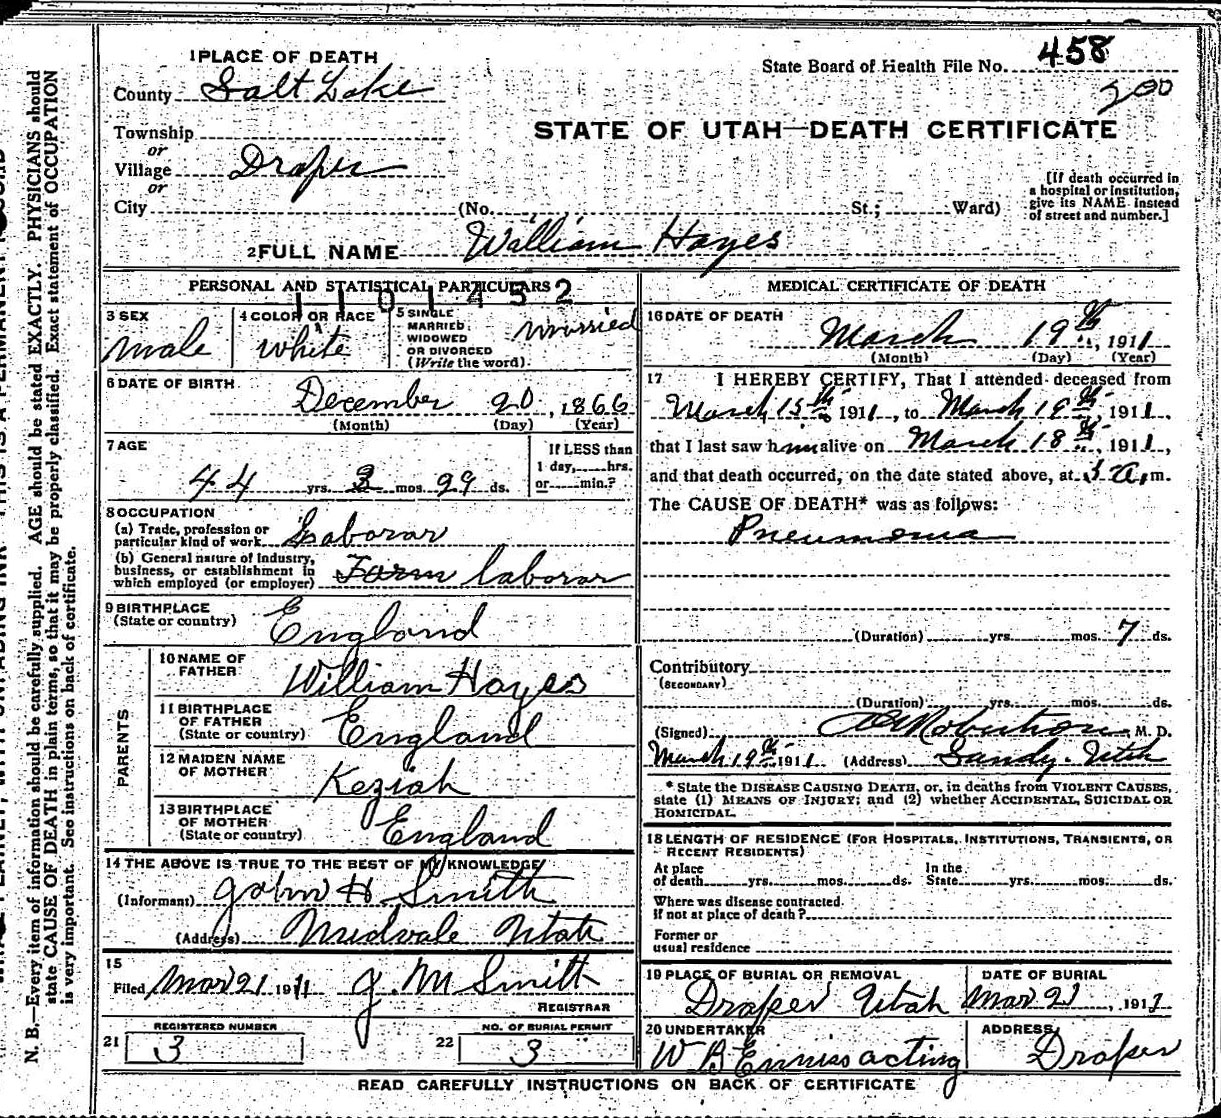 1 PLACE OF DEATH
State Board of Health File No. 458
County Salt Lake
200
Township
STATE OF UTAH—DEATH CERTIFICATE
or
Village Draper
or
City (No. St.; Ward)
[If death occurred in
a hospital or institution,
give its NAME instead
of street and number.]
2 FULL NAME William Hayes
PERSONAL AND STATISTICAL PARTICULARS
1101452
3 SEX
male
4 COLOR OR RACE
white
5 SINGLE
MARRIED
WIDOWED
OR DIVORCED
(Write the word)
married
6 DATE OF BIRTH
December 20, 1866
(Month) (Day) (Year)
7 AGE
44 yrs. 2 mos. 29 ds.
If LESS than
1 day, hrs.
or min.?
8 OCCUPATION
(a) Trade, profession or
particular kind of work Laborar
(b) General nature of industry,
business, or establishment in
which employed (or employer) Farm laborar
9 BIRTHPLACE
(State or country) England
PARENTS
10 NAME OF
FATHER William Hayes
11 BIRTHPLACE
OF FATHER
(State or country) England
12 MAIDEN NAME
OF MOTHER Keziah
13 BIRTHPLACE
OF MOTHER
(State or country) England
14 THE ABOVE IS TRUE TO THE BEST OF MY KNOWLEDGE
(Informant) John H Smith
(Address) Midvale Utah
15
Filed Mar 21 1911 J. M Smith
REGISTRAR
REGISTERED NUMBER
21 3
NO. OF BURIAL PERMIT
22 3
MEDICAL CERTIFICATE OF DEATH
16 DATE OF DEATH
March 19th, 1911
(Month) (Day) (Year)
17 I HEREBY CERTIFY, That I attended deceased from
March 15th 1911, to March 19th, 1911,
that I last saw him alive on March 18th, 1911,
and that death occurred, on the date stated above, at a, m.
The CAUSE OF DEATH* was as follows:
Pneumonia
(Duration) yrs. mos. 7 ds.
Contributory
(SECONDARY)
(Duration) yrs. mos. ds.
(Signed) Robertson M. D.
March 19th 1911 (Address) Sandy. Utah
* State the DISEASE CAUSING DEATH, or, in deaths from VIOLENT CAUSES,
state (1) MEANS OF INJURY; and (2) whether ACCIDENTAL, SUICIDAL OR
HOMICIDAL.
18 LENGTH OF RESIDENCE (FOR HOSPITALS, INSTITUTIONS, TRANSIENTS, OR
RECENT RESIDENTS)
At place
of death yrs. mos. ds.
In the
State yrs. mos. ds.
Where was disease contracted,
if not at place of death?
Former or
usual residence
19 PLACE OF BURIAL OR REMOVAL
Draper Utah
DATE OF BURIAL
Mar 21, 1911
20 UNDERTAKER
W B Enniss acting
ADDRESS
Draper
READ CAREFULLY INSTRUCTIONS ON BACK OF CERTIFICATE
N. B.—Every item of information should be carefully supplied. AGE should be stated EXACTLY. PHYSICIANS should
state CAUSE OF DEATH in plain terms, so that it may be properly classified. Exact statement of OCCUPATION
is very important. See instructions on back of certificate.